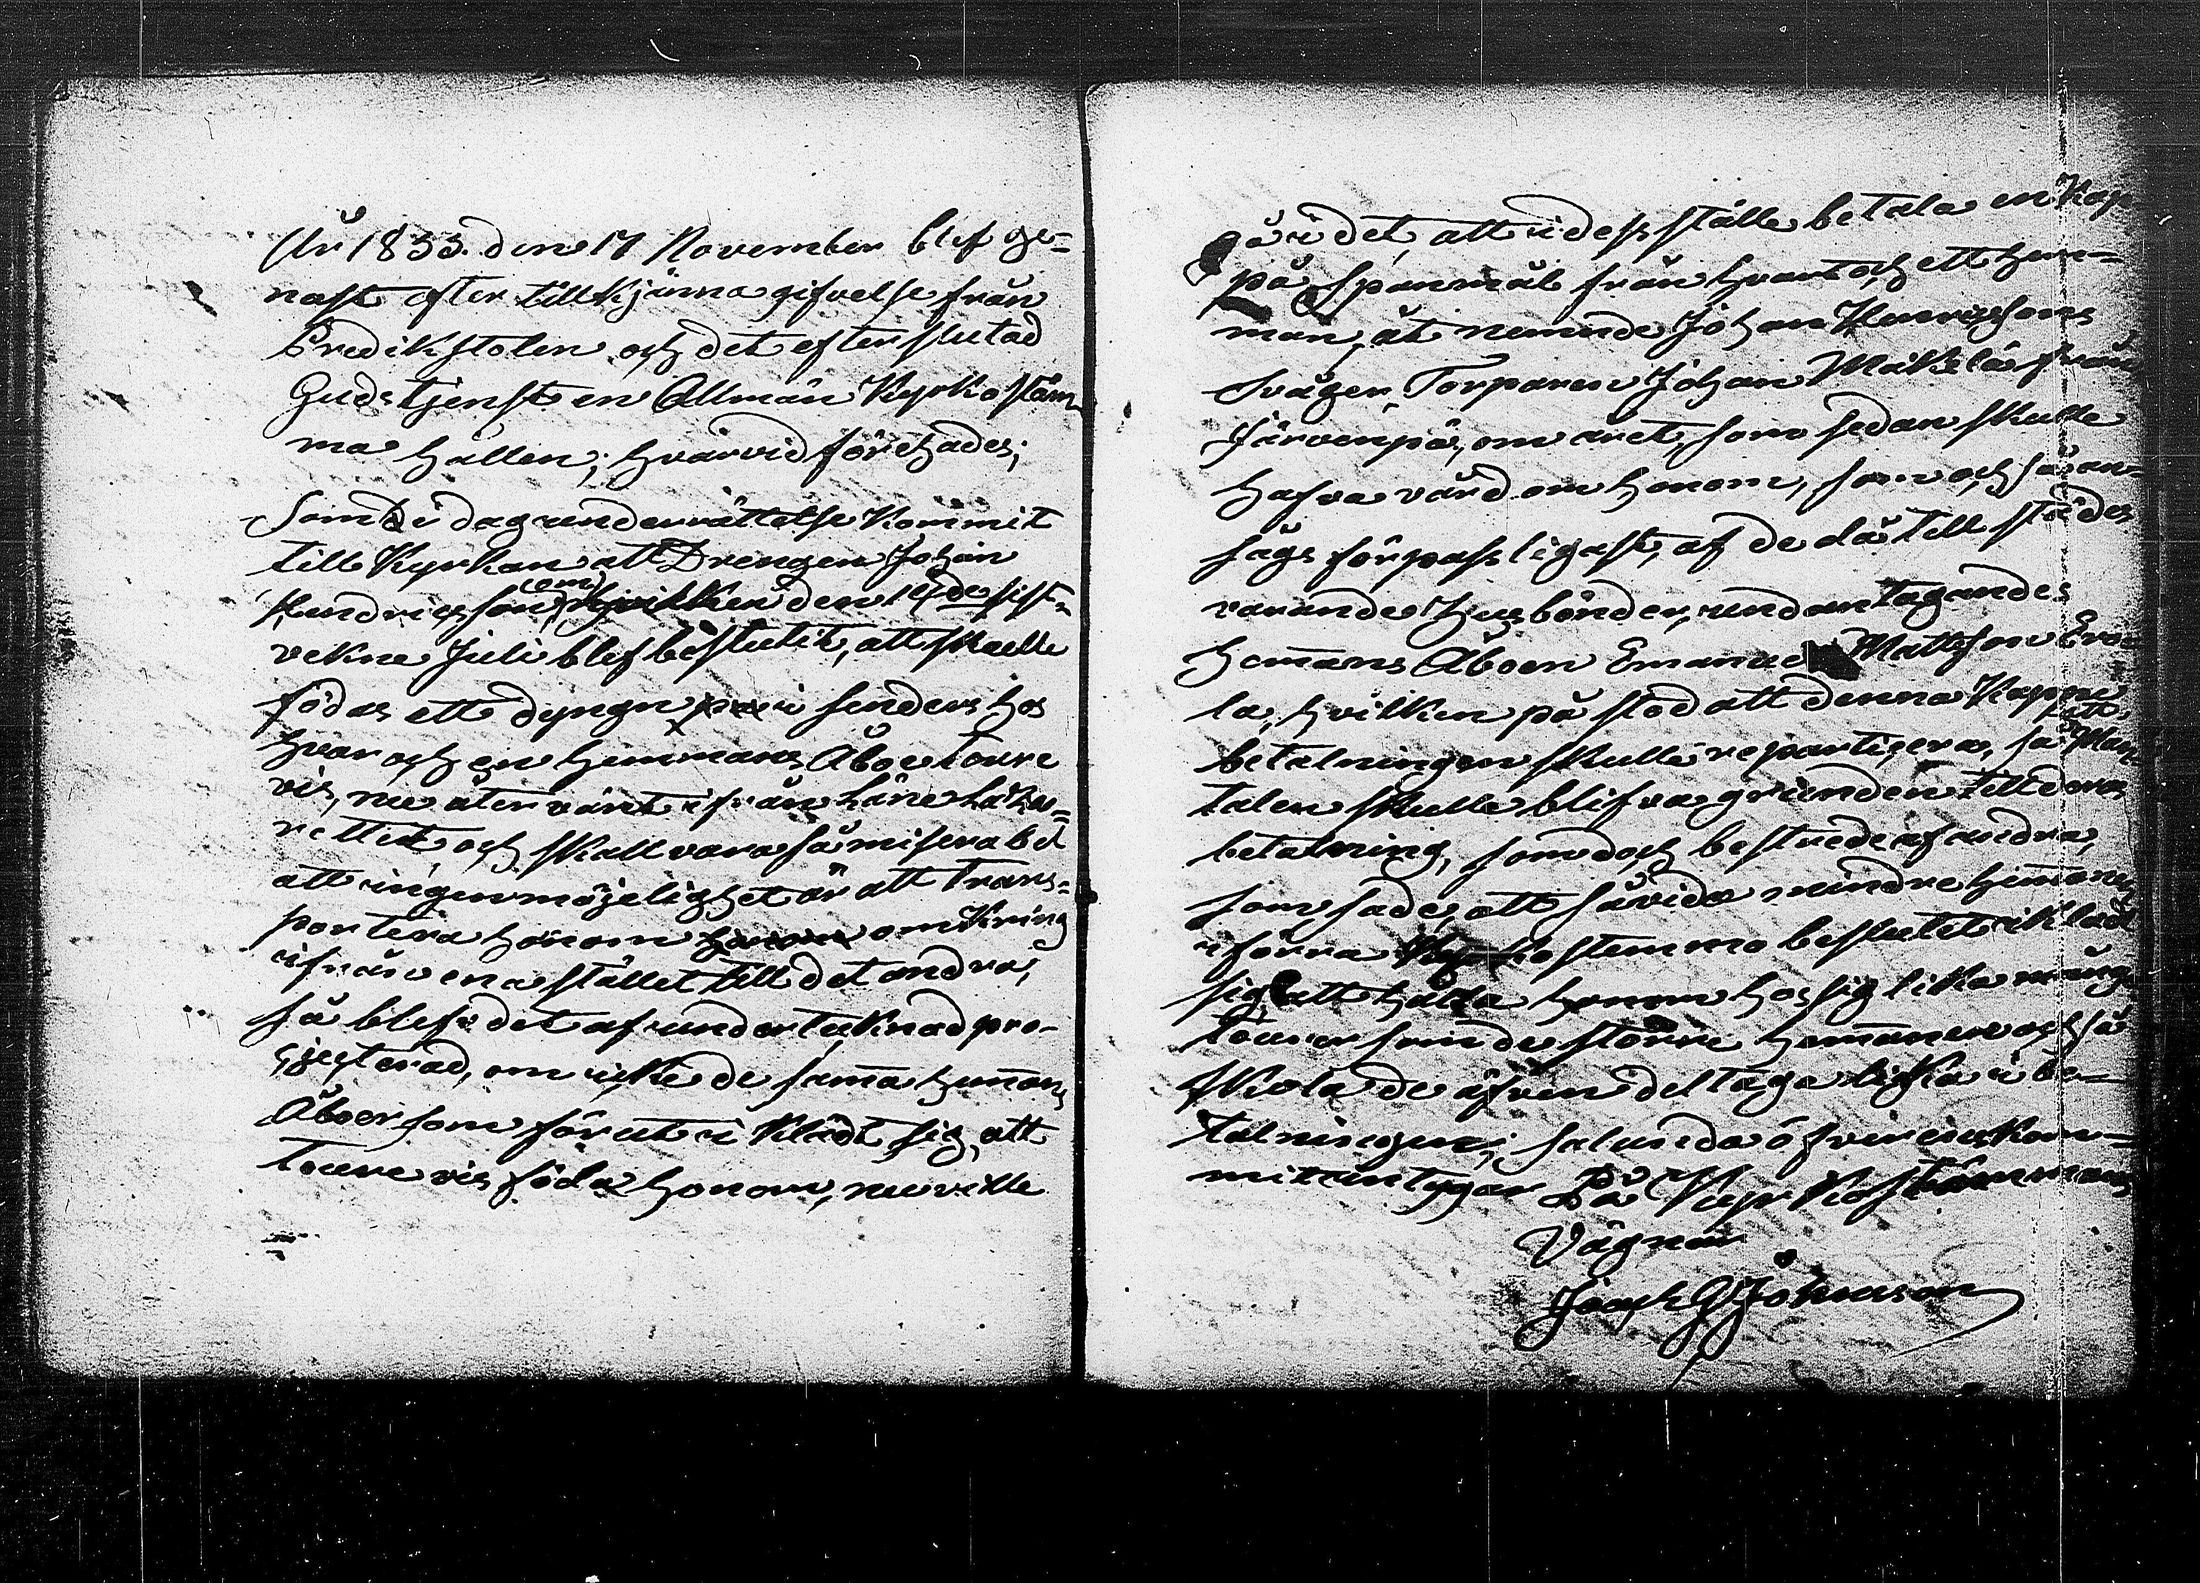 År 1833. den 17 November blef ge=
nast efter tillkjänna gifvelse från
Predikstolen och det efter slutad
Gudstjenst en Allmän Kyrkostäm
ma hållen; hvarvid förehades;
Som i dag underrättelse kommit
till Kyrkan att Drengen Johan
Hendricsson, om hvilken den 19de sist=
vekne Juli blef beslutit, att skulle
födas ett dyngn i senders hos
hvar och en hemmans Åboe toure
vis, nu åter vänt ifrån Läne Laza=
rettet och skall vara så miserabel
att ingen möjelighet är att trans=
portera honom omkring
ifrån ena stället till det andra,
så blef det af undertecknad pro-
jecterad, om icke de samma hemmans
Åboer som förut i klädt sig, att
toure vis föda honom, nu ville
gå i det, att i dess ställe betala en Kap
pa spanmål från hvart och ett hem=
man, åt nemnde Johan Henricsons
Sväger, Torparen Johan Mäkelä från
Järvenpä, om året, som sedan skulle
hafva vård om honom, som och så an=
sågs för passligast, af de då till städes
varande Husbönder, undantagandes
hemans Åboen Emanuel Mattsson
la, hvilken på stod att denna Kappe
betalningen skulle repartiçera, så att Man
talen skulle blifva grunden till deras
betalning, som doch bestrede af andra,
som sade, att såvida mindre hemanen
i förra Kyrkostemmo beslutet iklädt
sig att hålla honom hos sig lika mång
tourer som de större hemanen och så
skola de äfven deltaga lika i be=
talningen; salunda öfverenskom=
mit intygar På Kyrkostämmans
Vägnar